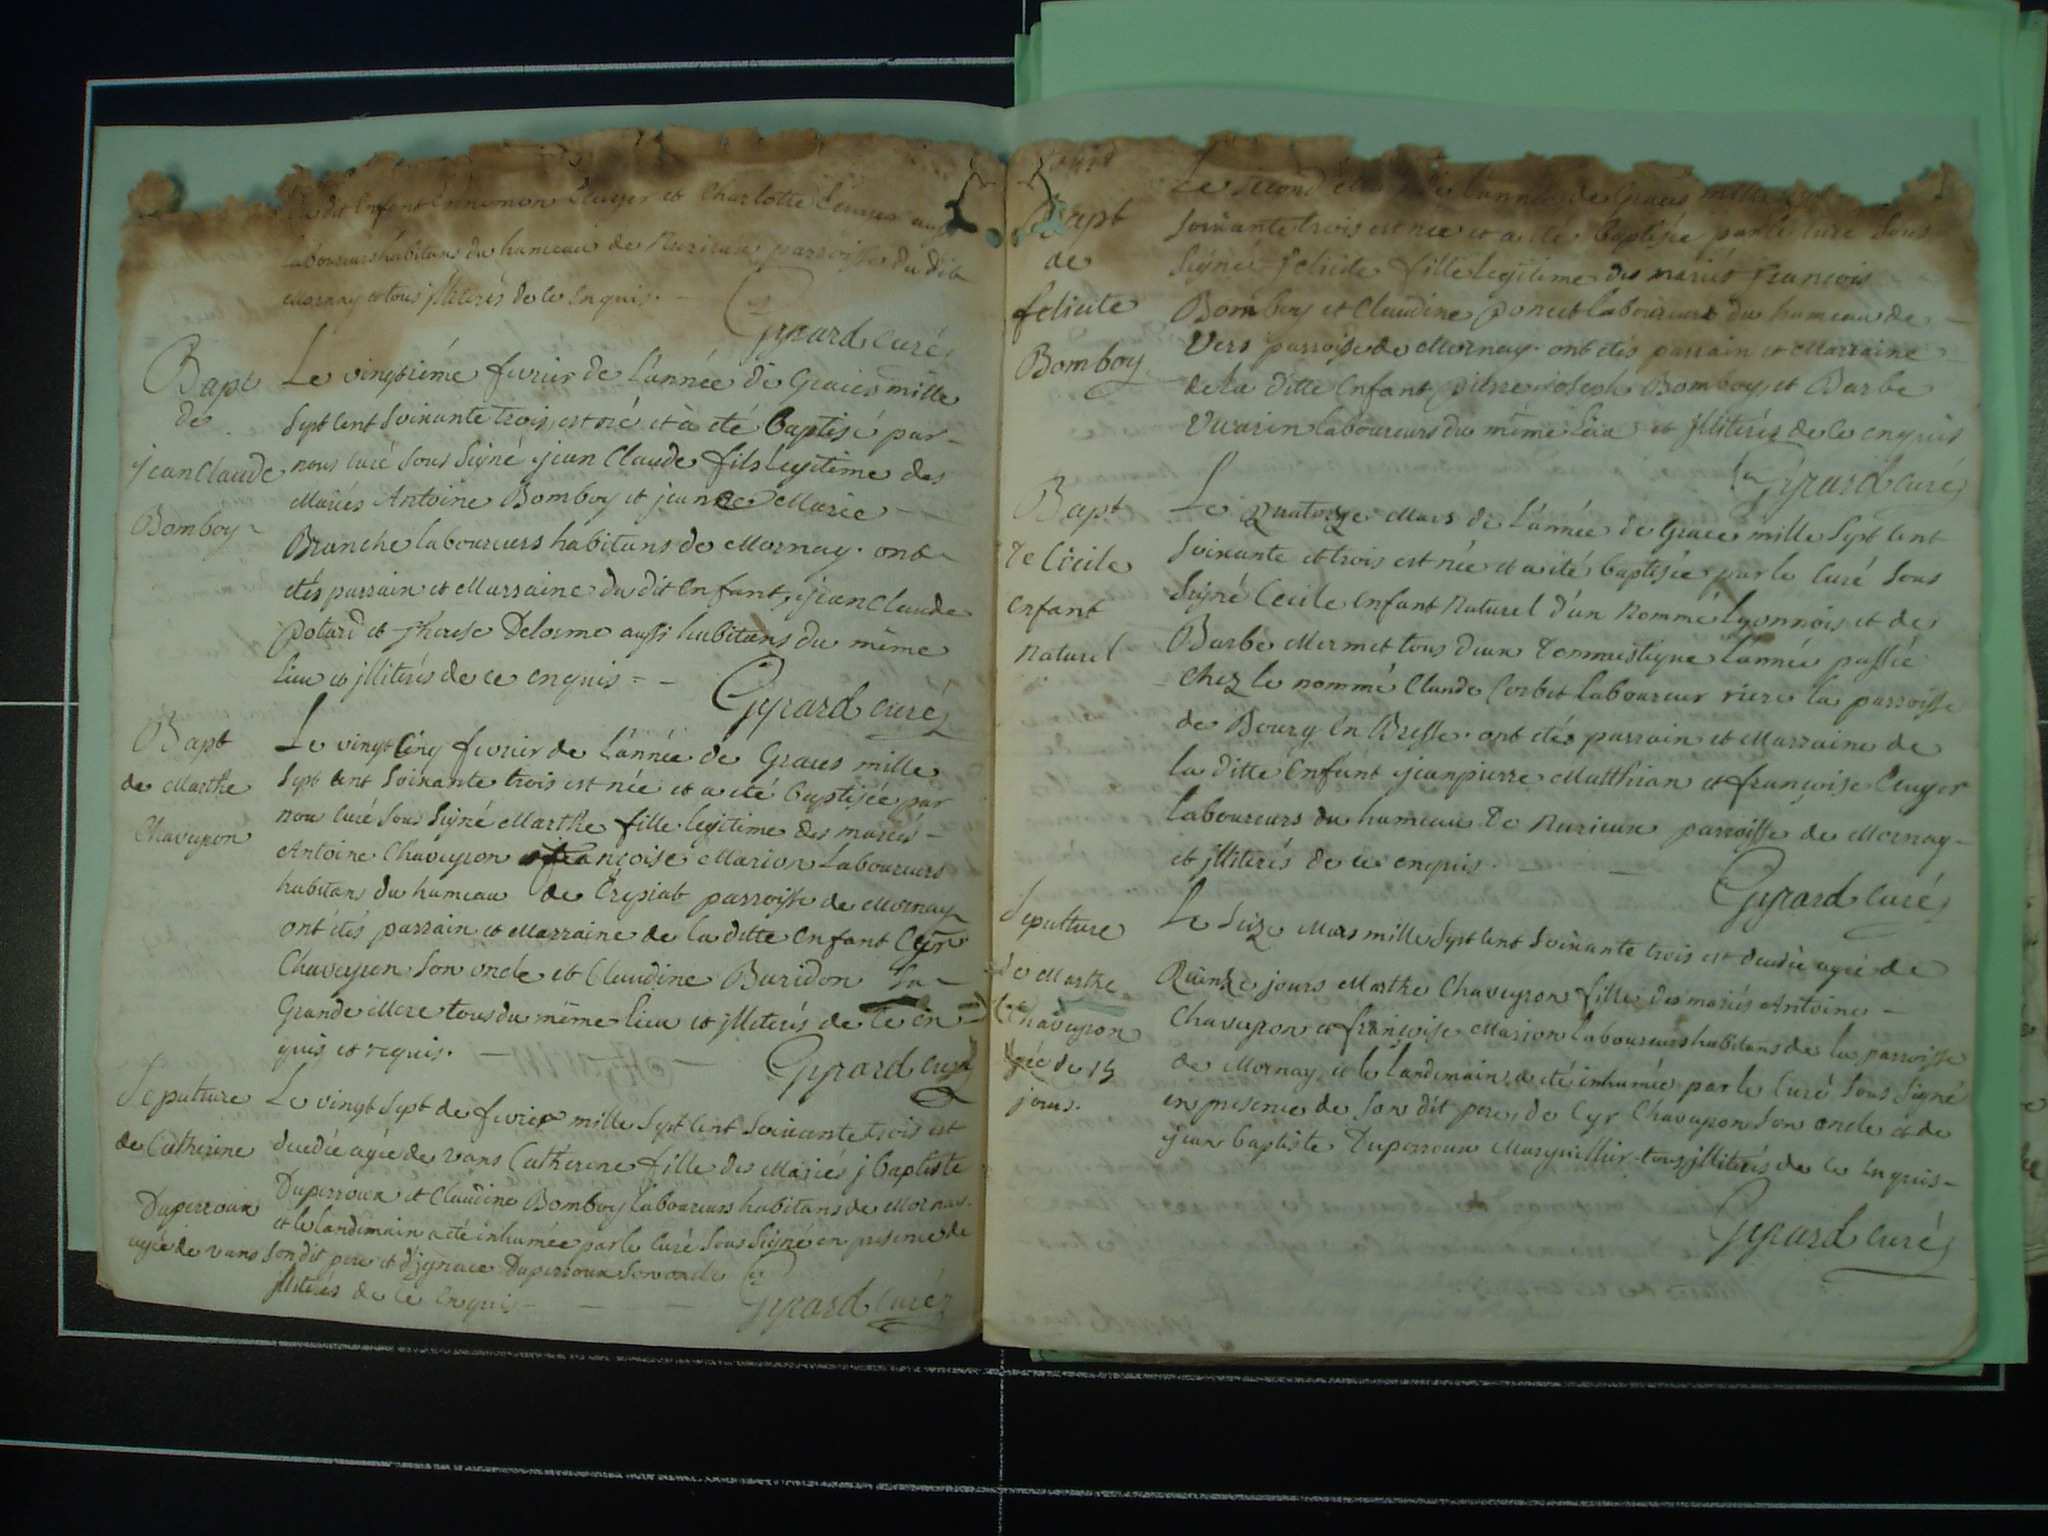 du dit Enfant Ennemon Cruyer et Charlotte Cruyer aussi
laboureurs habitans du hameau de Nurieux parroisse du dit
Mornay et tous jlliterés de ce enquis.
Gyrard curé
Bapt
de
jean Claude
Bomboy
Le vingtiéme fevrier de l'année de Graces mille
Sept Cent Soixante trois, est né et à eté Baptisé par
nous curé sous Signé jean Claude fils Legitime des
Mariés Antoine Bomboy et jeanne Marie
Branche laboureurs habitans de Mornay. ont
etés parrain et Marraine du dit enfant, jean Claude
potard et therese Delorme aussi habitans du même
lieu et jlliterés de ce enquis =
Gyrard curé
Bapt
de Marthe
Chaveyron
Le vingt Cinq fevrier de l'année de Graces mille
Sept Cent Soixante trois est née et a eté Baptisée par
nou curé sous Signé Marthe fille legitime des mariés
Antoine Chaveyron françoise Marion Laboureurs
habitans du hameau de Crepiat parroisse de Mornay
ont étés parrain et Marraine de la ditte enfant Cyr
Chaveyron Son oncle et Claudine Buridon Sa
Grande Mere tous du même lieu et jlliterés de ce en
quis et requis.
Gyrard curé
Sepulture
de Catherine
Duperroux
agée de 2 ans
Le vingt Sept de fevrier mille Sept Cent Soixante trois est
decedée agée de 2 ans Catherine fille des Mariés j Baptiste
Duperroux et Claudine Bomboy laboureurs habitans de Mornay
et le landemain a eté inhumée par le Curé Sous Signé en presence de
Son dit pere et d'jgnace Duperroux Son oncle
jlliterés de ce enquis
Gyrard curé
Bapt
de
felicite
Bomboy
Le Second de l'année de Graces mille Sept
Soixante trois est née et a eté Baptisée par le Curé Sous
Signé felicite fille Legitime des mariés françois
Bomboy et Claudine poncet laboureurs du hameau de
Vers parroisse de Mornay. ont etés parrain et Marraine
de la ditte Enfant pierre joseph Bomboy et Barbe
Vuarin laboureurs du même lieu et jlliterés de ce enquis
Gyrard curé
Bapt
De Cécile
enfant
naturel
Le Quatorze Mars de l'année de Grace mille Sept Cent
Soixante et trois est née et a eté Baptisée par le Curé Sous
Signé Cecile enfant Naturel d'un Nommé Lyonnois et de
Barbe Mermet tous deux Dommestique l'année passée
Chez le nommé Claude Corbet laboureur riere la parroisse
de Bourg En Bresse. ont etés parrain et Marraine de
la ditte Enfant jean pierre Matthian et françoise Cruyer
laboureurs du hameau De Nurieux parroisse de Mornay
et jlliterés de ce enquis.
Gyrard curé
Sepulture
de Marthe
Chaveyron
agée de 15
jours.
Le Seize Mars mille Sept Cent Soixante trois est decedée agée de
Quinze jours Marthe Chaveyron fille des mariés Antoine
Chaveyron et françoise Marion laboureurs habitans de la parroisse
de Mornay et le landemain a eté inhumée par le Curé Sous Signé
en presence de Son dit pere, de Cyr Chaveyron Son oncle et de
jean Baptiste Duperroux Marguillier tous jlliterés de ce enquis
Gyrard curé